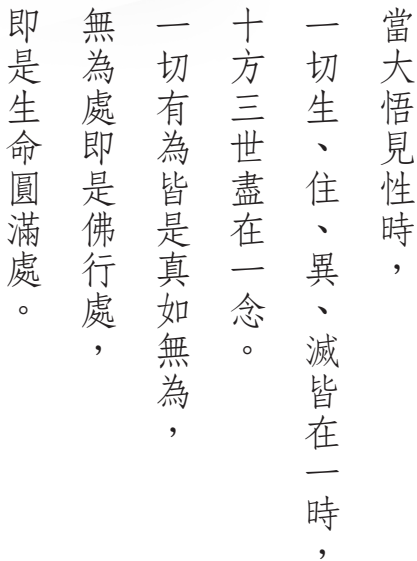 當大悟見性時，
一切生、住、異、滅皆在一時，
十方三世盡在一念。
一切有為皆是真如無為，
無為處即是佛行處，
即是生命圓滿處。